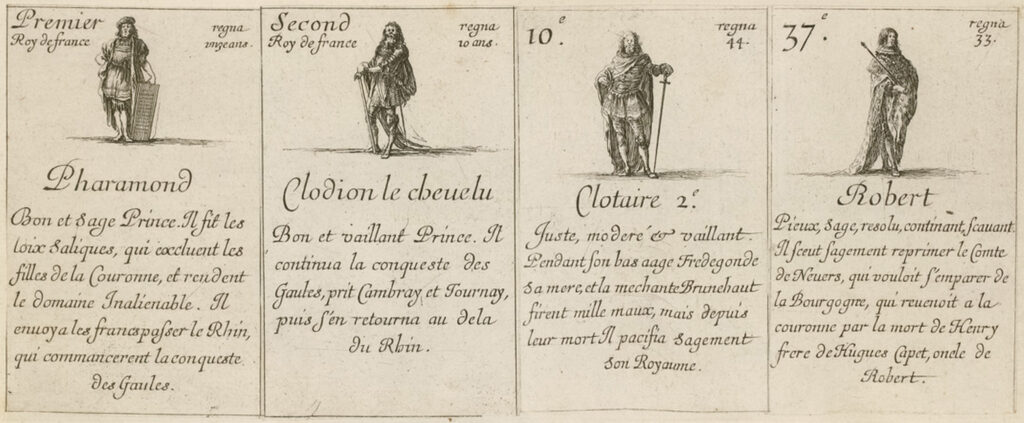 Premier
Roy de france
regna
onze ans.
Pharamond
Bon et Sage Prince. Il fit les
loix Saliques, qui excluent les
filles de la Couronne, et rendent
le domaine Inalienable. Il
enuoya les francs passer le Rhin,
qui commancerent la conqueste
des Gaules.
Second
Roy de france
regna
10 ans.
Clodion le cheuelu
Bon et vaillant Prince. Il
continua la conqueste des
Gaules, prit Cambray et Tournay,
puis s'en retourna au dela
du Rhin.
10.e
regna
44.
Clotaire 2.e
Juste, moderé & vaillant.
Pendant son bas aage Fredegonde
Sa mere, et la mechante Brunehaut
firent mille maux, mais depuis
leur mort Il pacifia Sagement
Son Royaume.
37.e
regna
33.
Robert
Pieux, Sage, resolu, continant, scauant.
Il sceut sagement reprimer le Comte
de Neuers, qui vouloit s'emparer de
la Bourgogne, qui reuenoit a la
couronne par la mort de Henry
frere de Hugues Capet, oncle de
Robert.